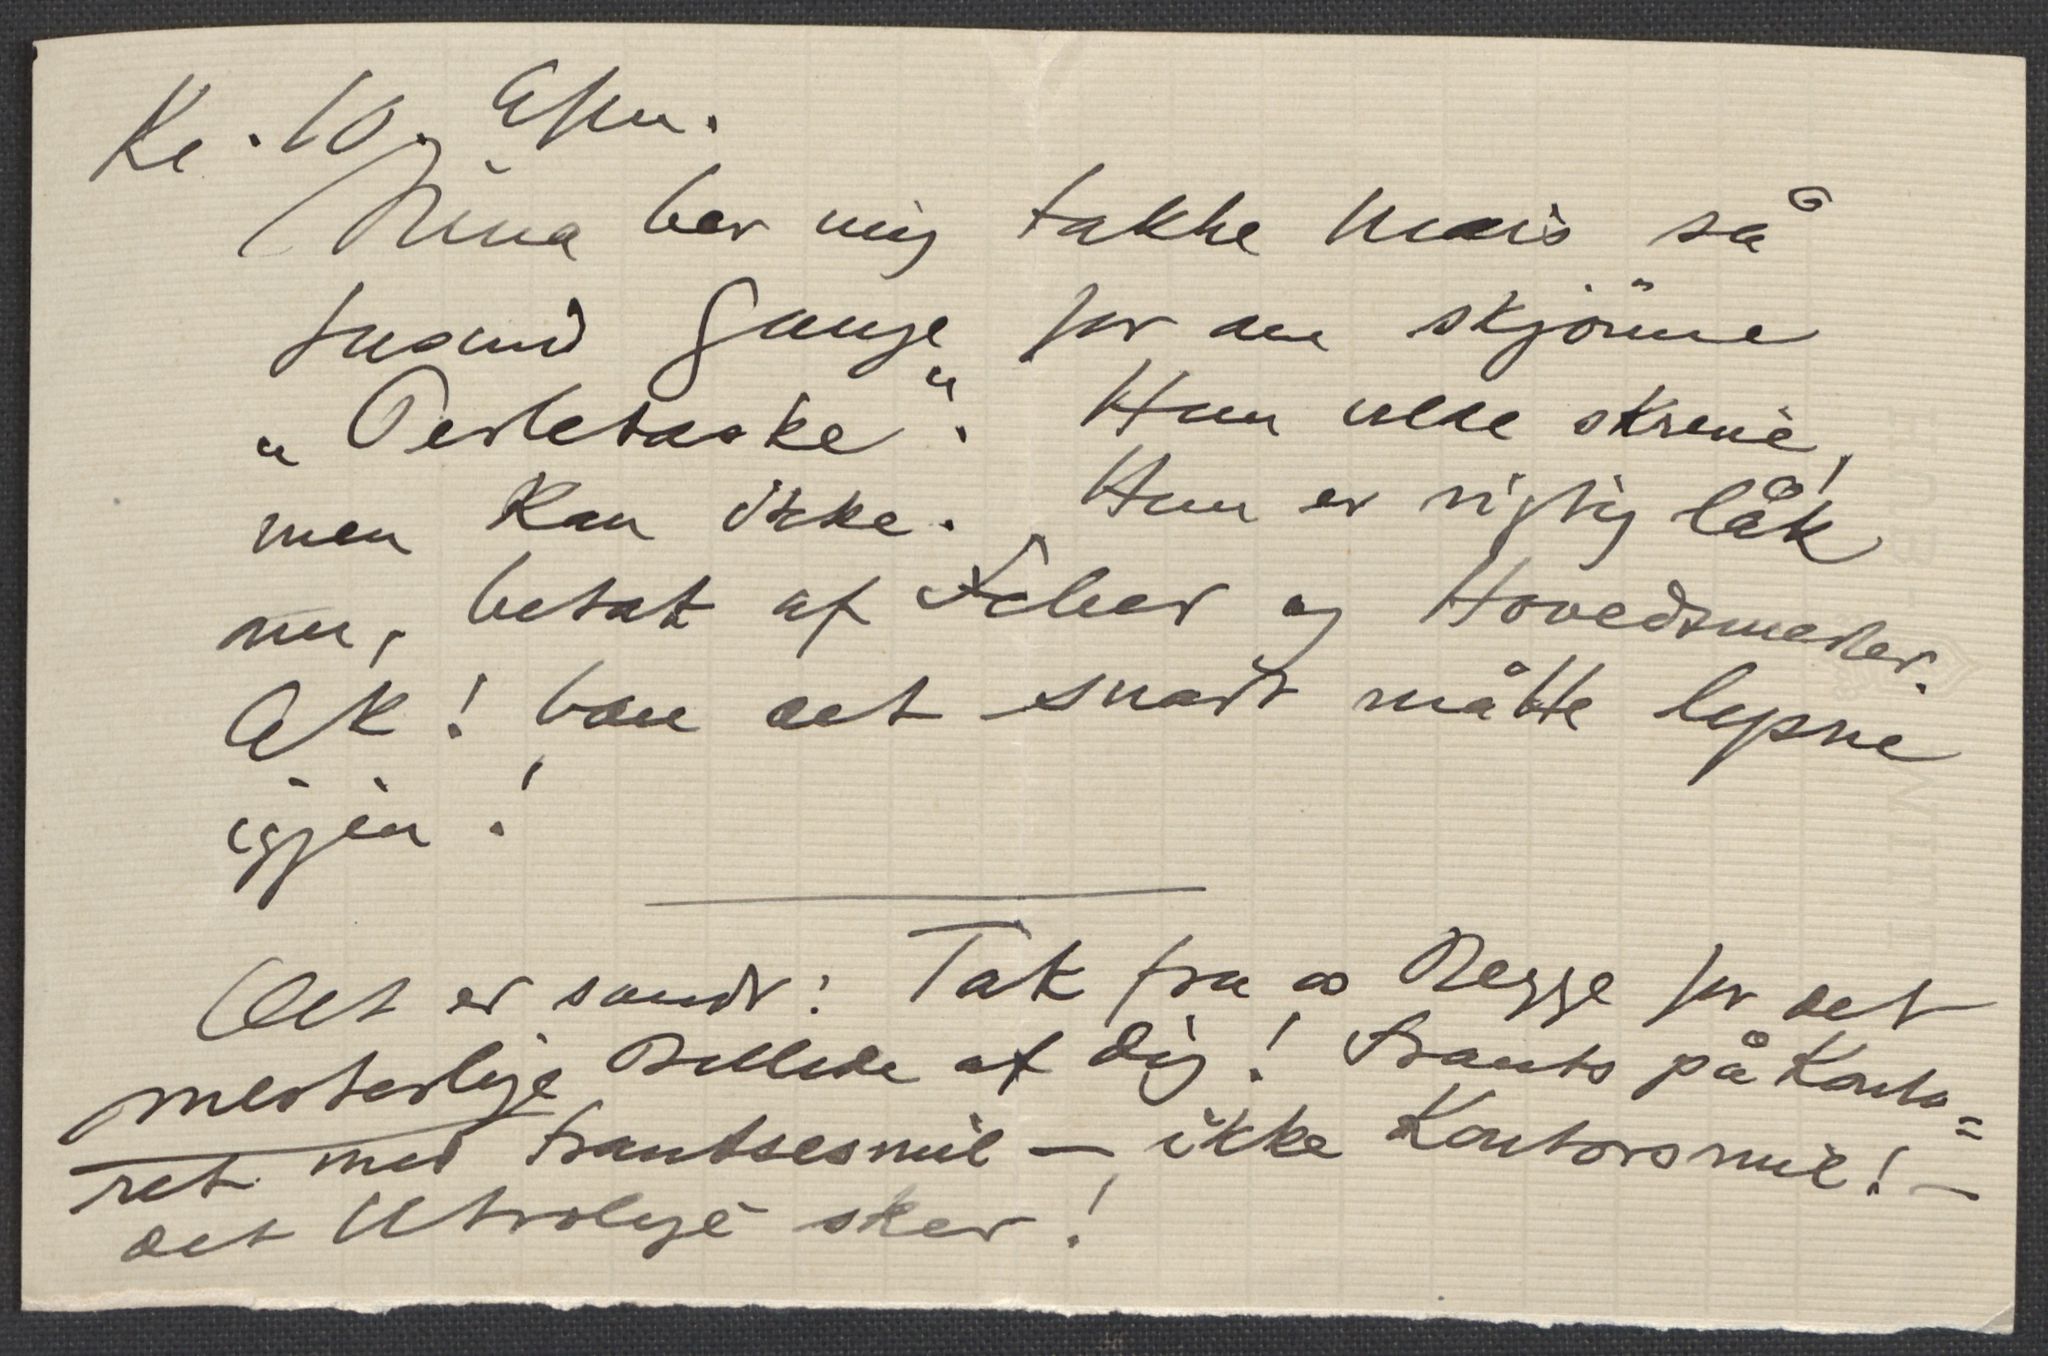 Kl. 10. Eftm.
Nina ber mig takke Mais så
tusend Gange for den skjönne
„Perletaske“. Hun vilde skrive,
men kan ikke. Hun er rigtig låk
nu, betat af Feber og Hovedsmerter.
Ak! bare det snart måtte lysne
igjen!
Det er sandt: Tak fra os Begge for det
mesterlige Billede af Dig! Frants på Konto=
ret med Frantsesmil – ikke Kontorsmil! –
det Utrolige sker!